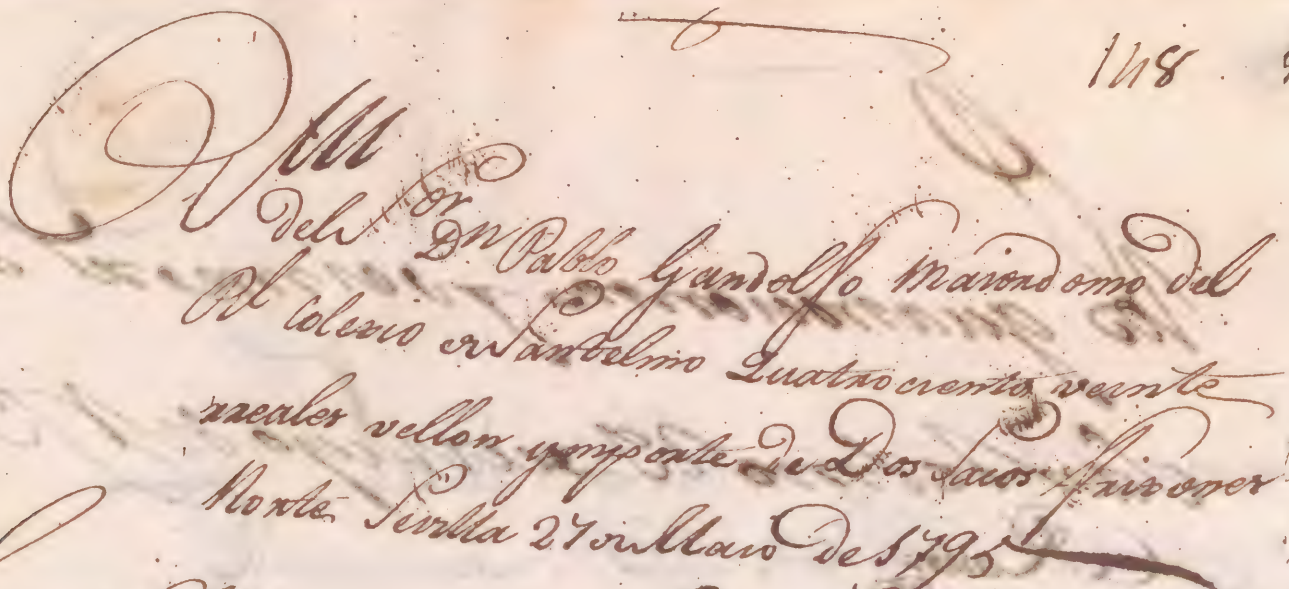 148
del Sor Dn Pablo Gandolfo Maiordomo del
Rl Colexio de Santelmo Quatrocientos veinte
rreales vellon ymporte de Dos sacos frixones
Norte Sevilla 27 de Maio de 1795